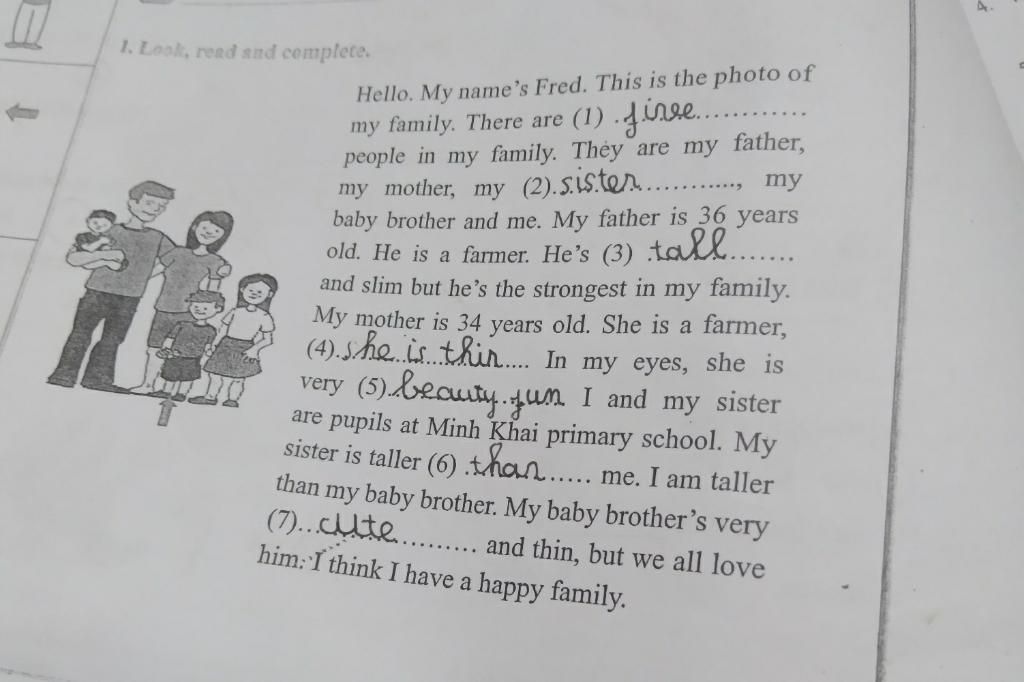 1. Look, read and complete.
Hello. My name's Fred. This is the photo of
my family. There are (1) .five............
people in my family. They are my father,
my mother, my (2).sister..........., my
baby brother and me. My father is 36 years
old. He is a farmer. He's (3) .tall.......
and slim but he's the strongest in my family.
My mother is 34 years old. She is a farmer,
(4).she is thin.... In my eyes, she is
very (5)..beauty fun I and my sister
are pupils at Minh Khai primary school. My
sister is taller (6) .than..... me. I am taller
than my baby brother. My baby brother's very
(7)...cute.......... and thin, but we all love
him. I think I have a happy family.
4.